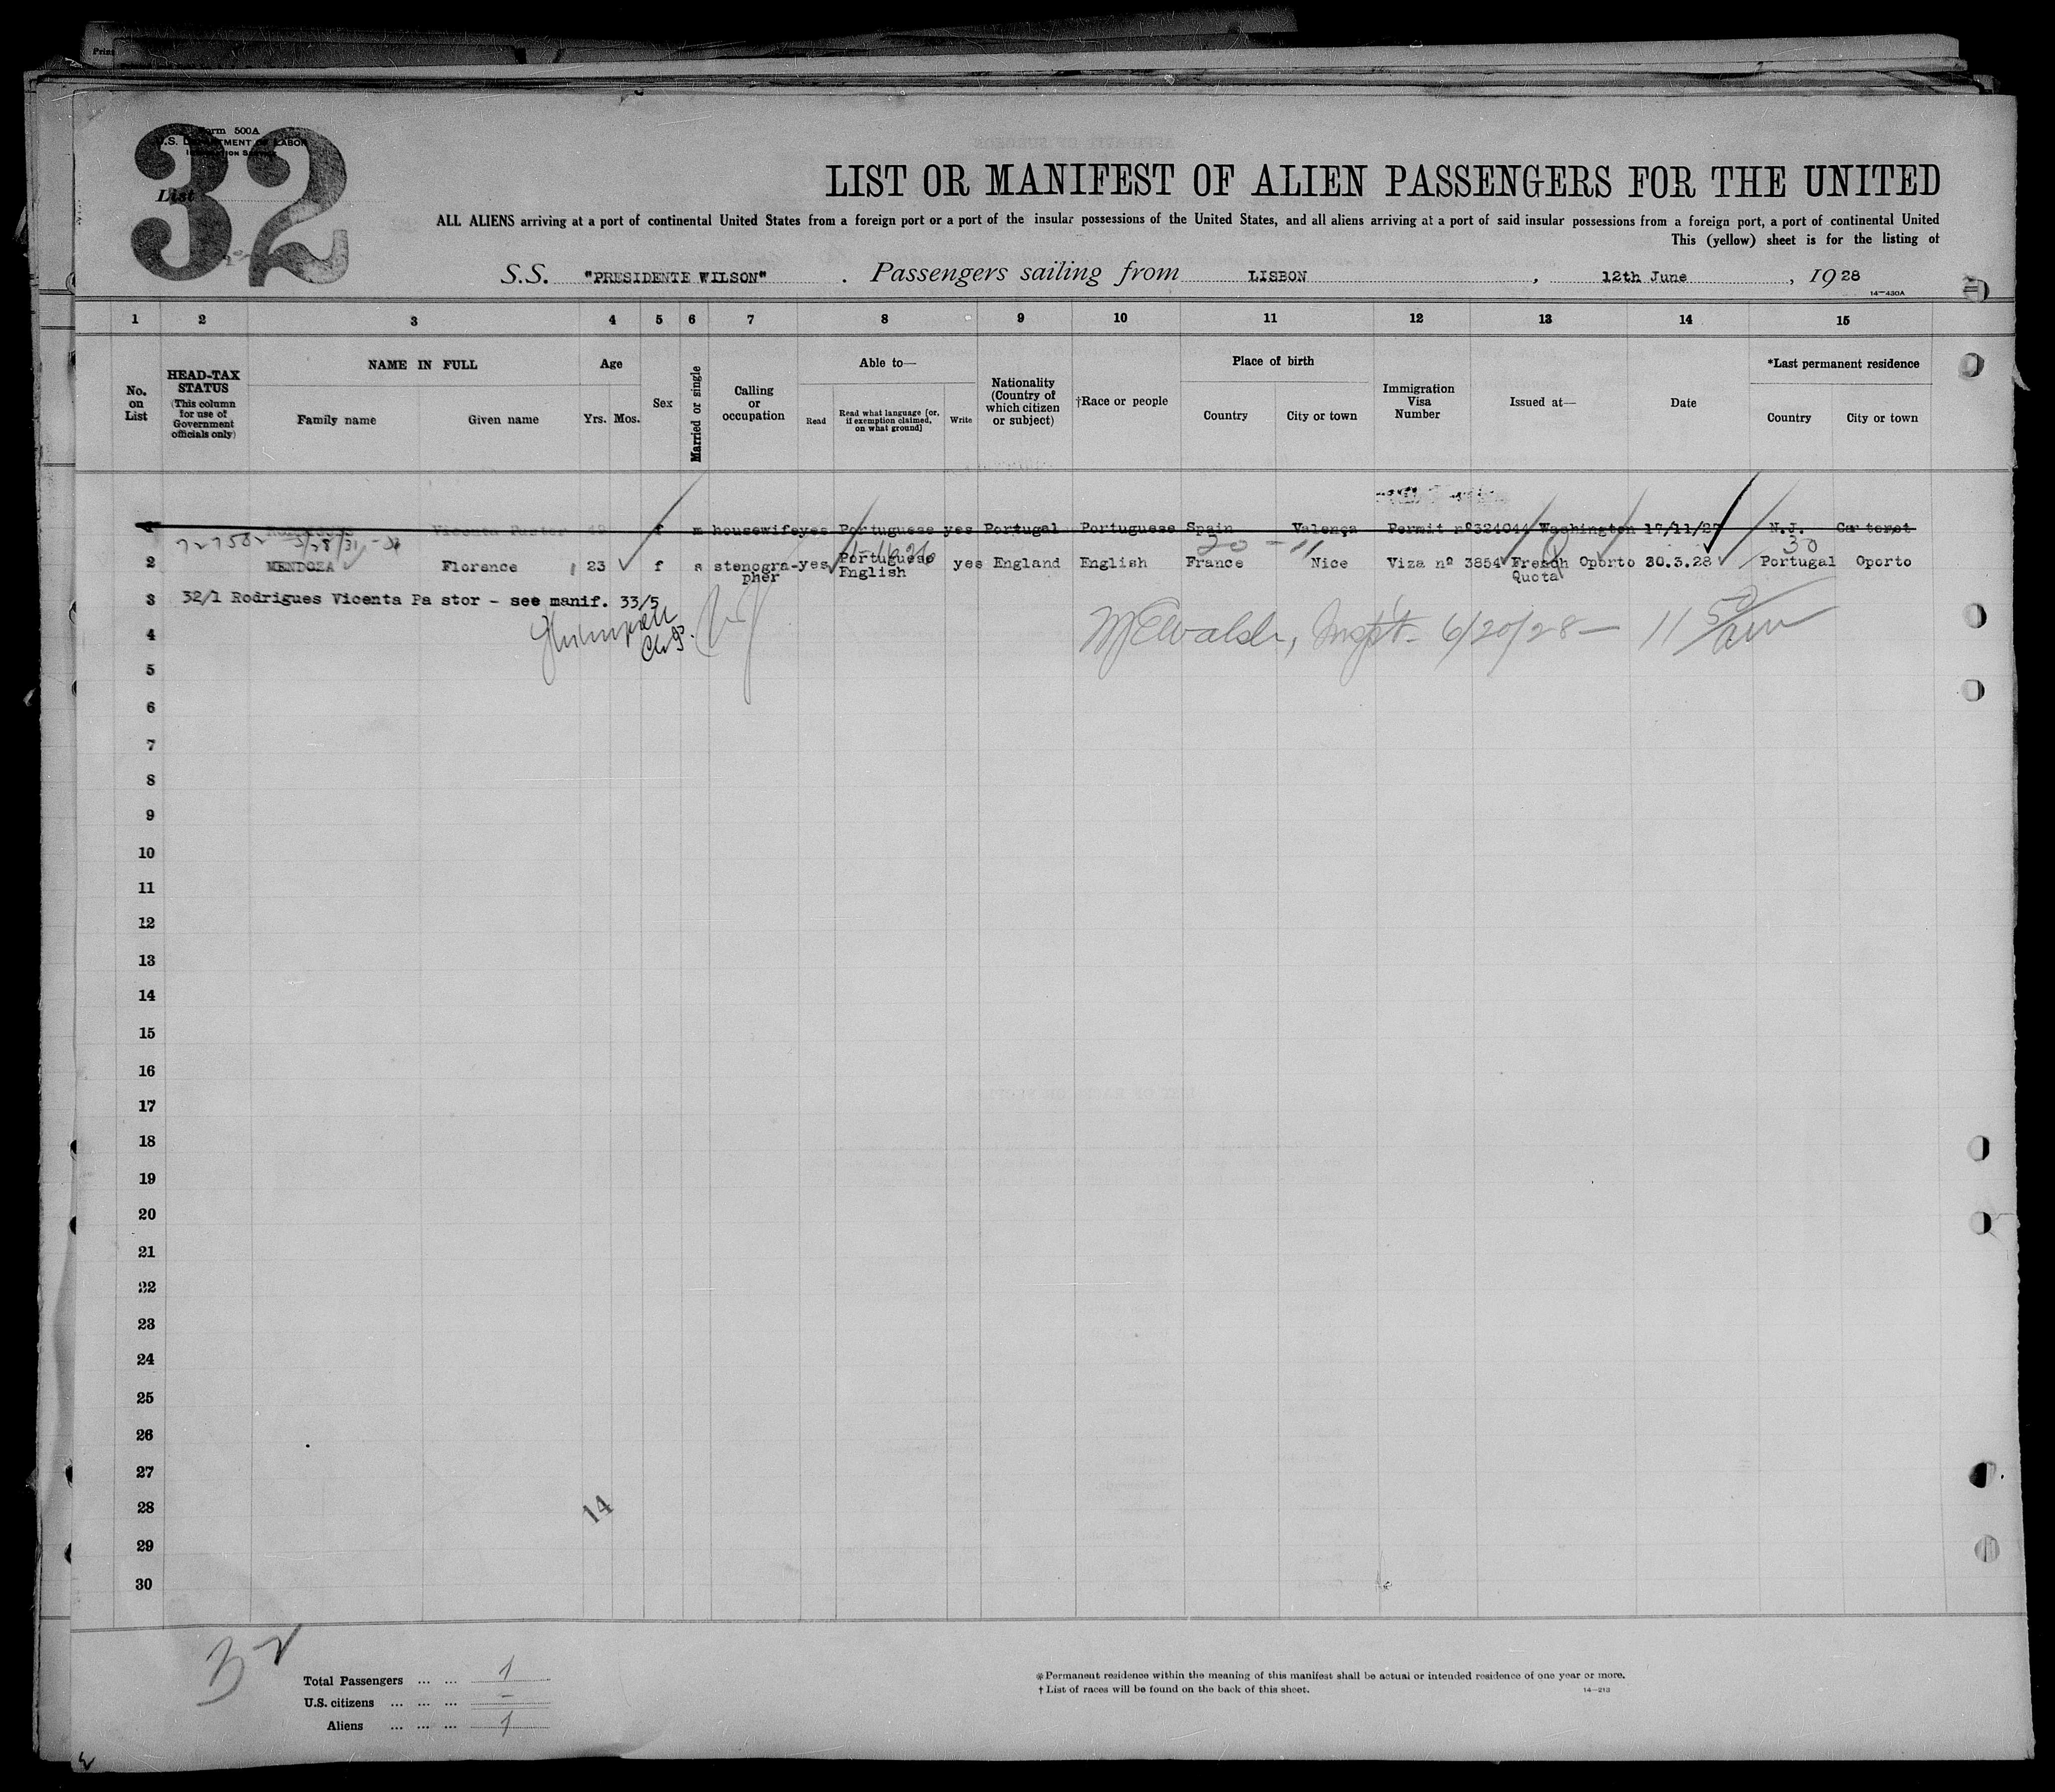 Form 500A
U.S. DEPARTMENT OF LABOR
IMMIGRATION SERVICE
List
32
LIST OR MANIFEST OF ALIEN PASSENGERS FOR THE UNITED
ALL ALIENS arriving at a port of continental United States from a foreign port or a port of the insular possessions of the United States, and all aliens arriving at a port of said insular possessions from a foreign port, a port of continental United
This (yellow) sheet is for the listing of
S.S. "PRESIDENTE WILSON". Passengers sailing from LISBON, 12th June, 1928
14—430A
1 2 3 4 5 6 7 8 9 10 11 12 13 14 15
No. on List
HEAD-TAX STATUS (This column for use of Government officials only)
NAME IN FULL
Family name Given name
Age
Yrs. Mos.
Sex
Married or single
Calling or occupation
Able to—
Read Read what language [or, if exemption claimed, on what ground] Write
Nationality (Country of which citizen or subject)
†Race or people
Place of birth
Country City or town
Immigration Visa Number
Issued at—
Date
*Last permanent residence
Country City or town
1 Vicenta Pastor 48 f m housewife yes Portuguese yes Portugal Portuguese Spain Valença Permit nº324044 Washington 17/11/27 N.J. Carteret
727582 3/28/31 20 - 11 30
2 MENDOZA Florence 23 f s stenogra-pher yes Portuguese English yes England English France Nice Viza nº 3854 French Quota Oporto 30.3.28 Portugal Oporto
3 32/1 Rodrigues Vicenta Pa stor - see manif. 33/5
4 M E Walsh, Inspt. 6/20/28 — 11 50/am
5
6
7
8
9
10
11
12
13
14
15
16
17
18
19
20
21
22
23
24
25
26
27
28
14
29
30
32
Total Passengers ... ... 1
U.S. citizens ... ... ... –
Aliens ... ... ... 1
*Permanent residence within the meaning of this manifest shall be actual or intended residence of one year or more.
† List of races will be found on the back of this sheet.
14—213